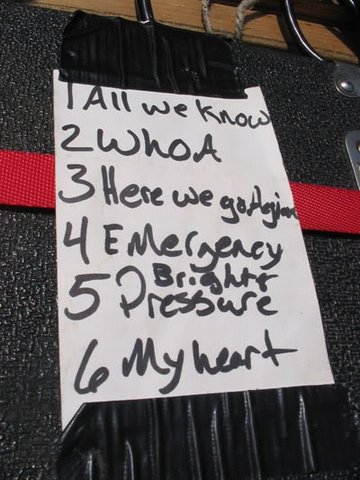 1 All we Know
2 WhOA
3 Here we go Again
4 EMergency
Brighter
5 Pressure
6 My heart